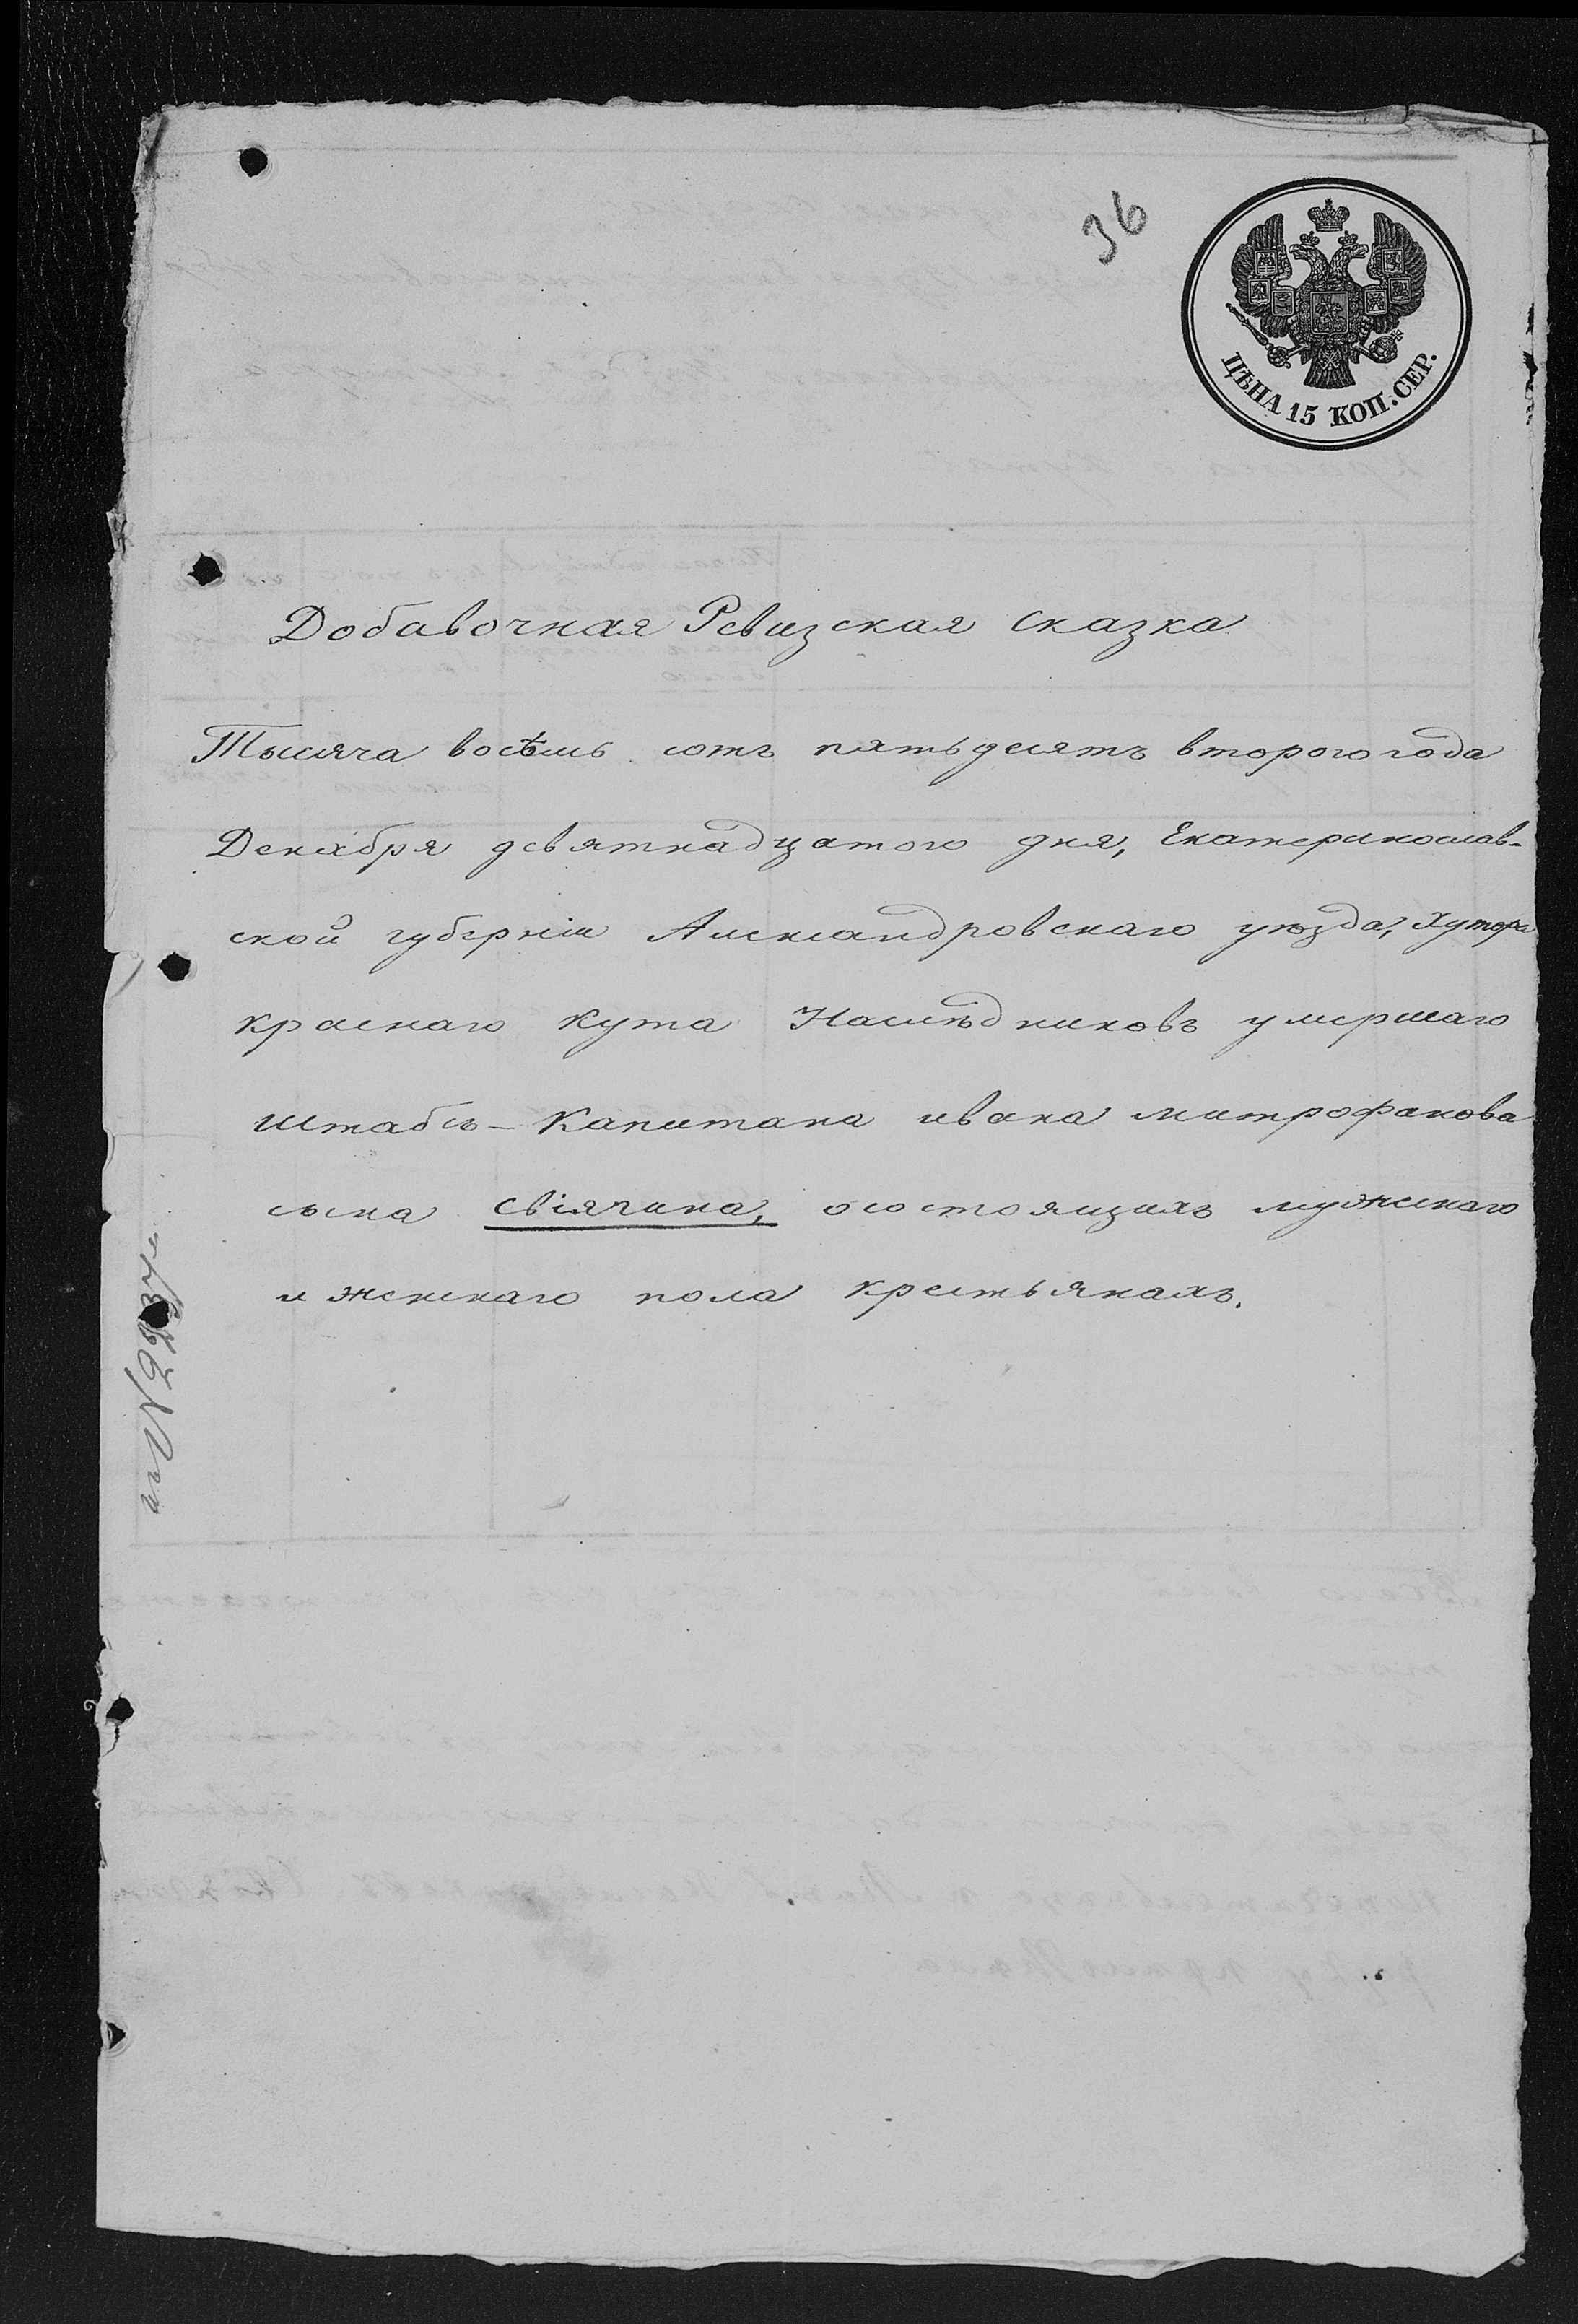 36
ЦѢНА 15 КОП: СЕР.
Добавочная Ревизская сказка
Тысяча восѣмь сотъ пятьдесятъ второго года
Декабря девятнадцатого дня, Екатеринослав-
ской губерніи Александровскаго уѣзда, Хутора
краснаго кута Наслѣдниковъ умершаго
Штабсъ-Капитана ивана митрофанова
сына свіячина, осостоящихъ мужескаго
и женскаго пола крестьянахъ.